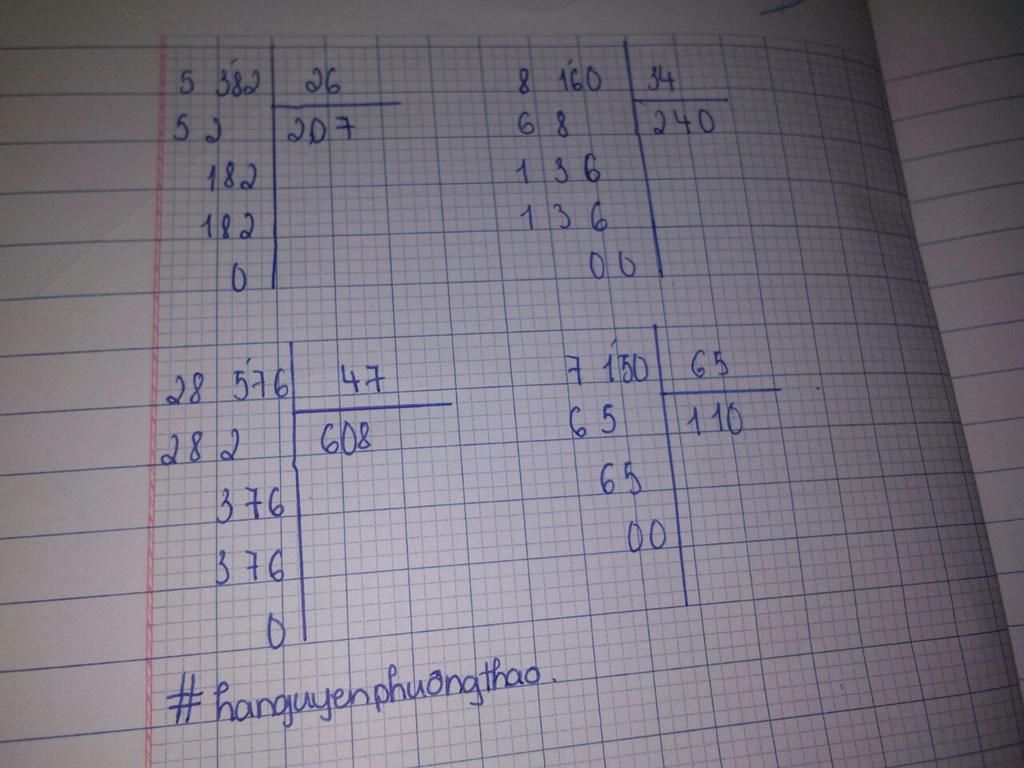 5 382 26
5 2 207
182
182
0
8 160 34
6 8 240
1 3 6
1 3 6
0 0
28 576 47
28 2 608
376
376
0
7 150 65
65 110
65
00
#hanguyenphuongthao.